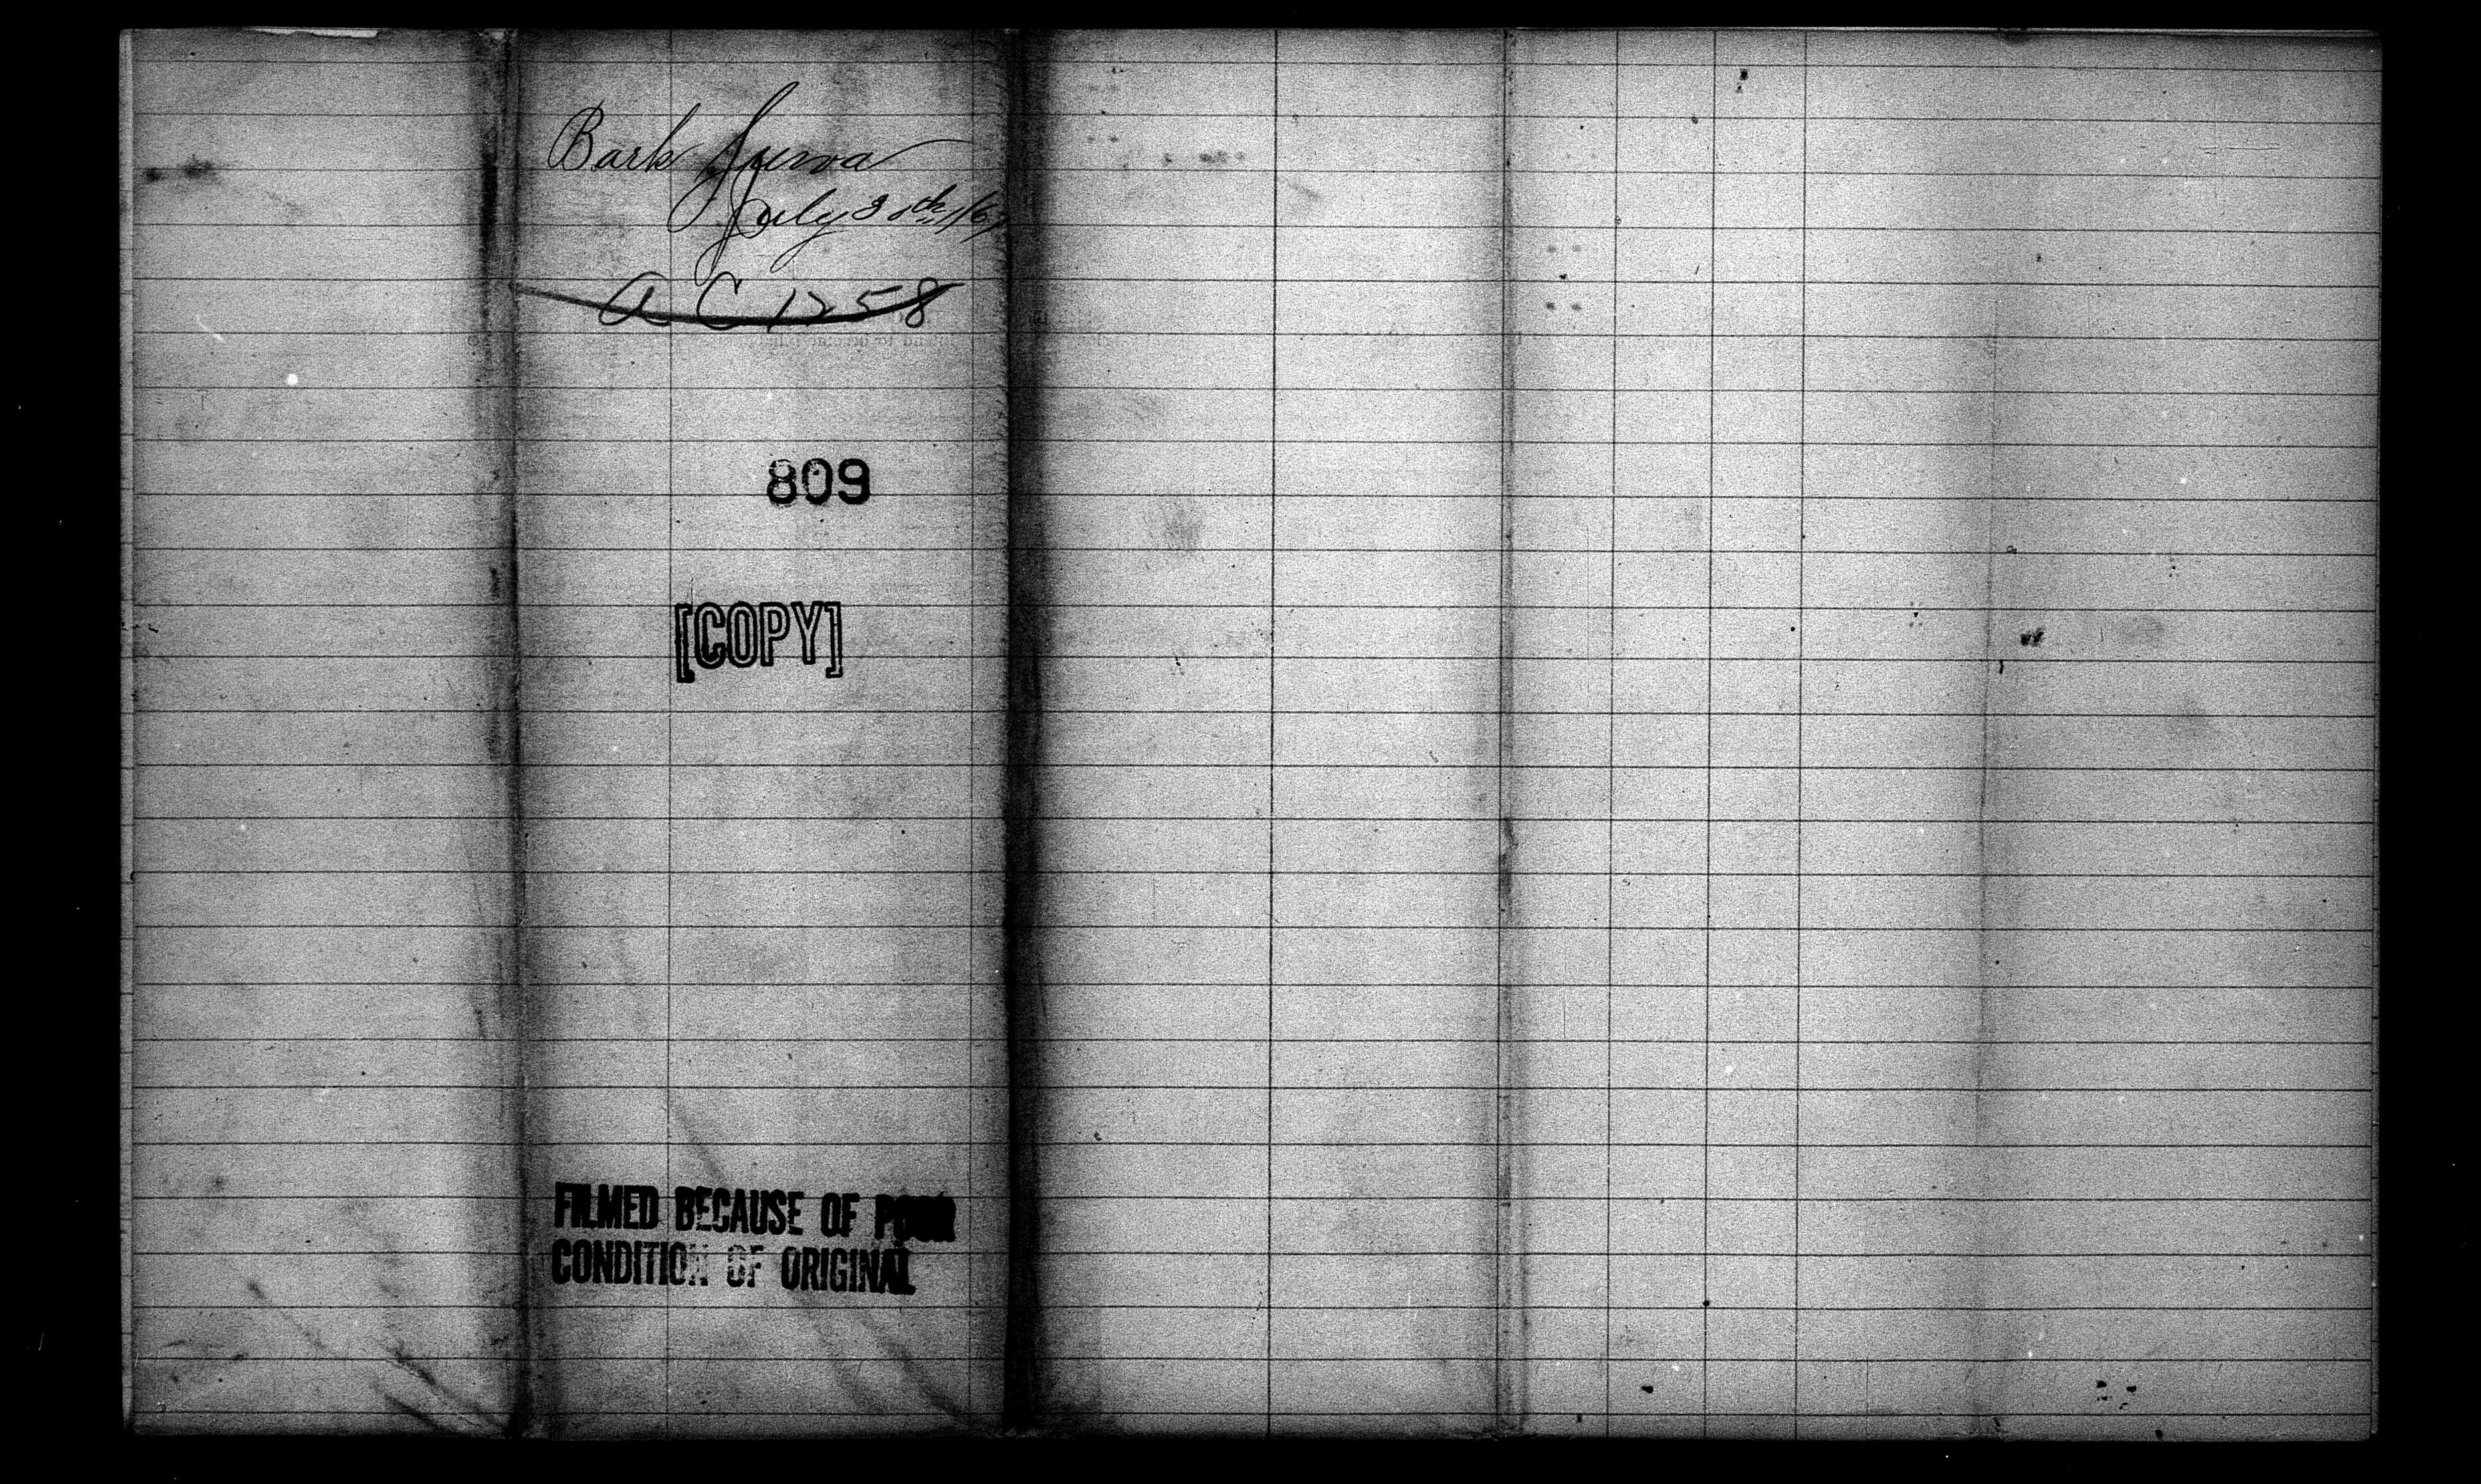 Bark
July
A C 1258
809
[COPY]
FILMED BECAUSE OF POOR
CONDITION OF ORIGINAL